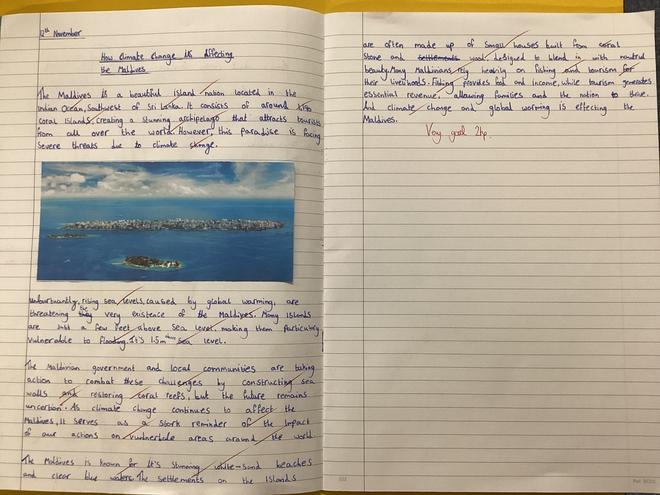 12th November
How climate change is Affecting
the Maldives
The Maldives is a beautiful island nation located in the
Indian Ocean, Southwest of Sri Lanka. It consists of around
coral Islands, creating a stunning archipelago that attracts tourists
from all over the world. However, this paradise is facing
severe threats due to climate change.
unfortuantly, rising sea levels, caused by global warming, are
threatening the very existence of the Maldives. Many Islands
are just a few feet above sea level, making them particulary
vulnerable to flooding. It's 1.5m above sea level.
The Maldivian government and local communities are taking
action to combat these challenges by constructing sea
walls and restoring coral reefs, but the future remains
uncertain. As climate change continues to affect the
Maldives, it serves as a stark reminder of the impact
of our actions on vulnerable areas around the world
The Maldives is known for it's stunning white-sand beaches
and clear blue waters. The settlements on the Islands
are often made up of small houses built from coral
stone and settlements wood, designed to blend in with
beauty. Many Maldivians rely heavily on fishing and tourism for
their livelihoods. Fishing provides food and income, while tourism generates
essential revenue, allowing families and the nation to thrive.
And climate change and global worming is effecting the
Maldives.
Very good 2hp.